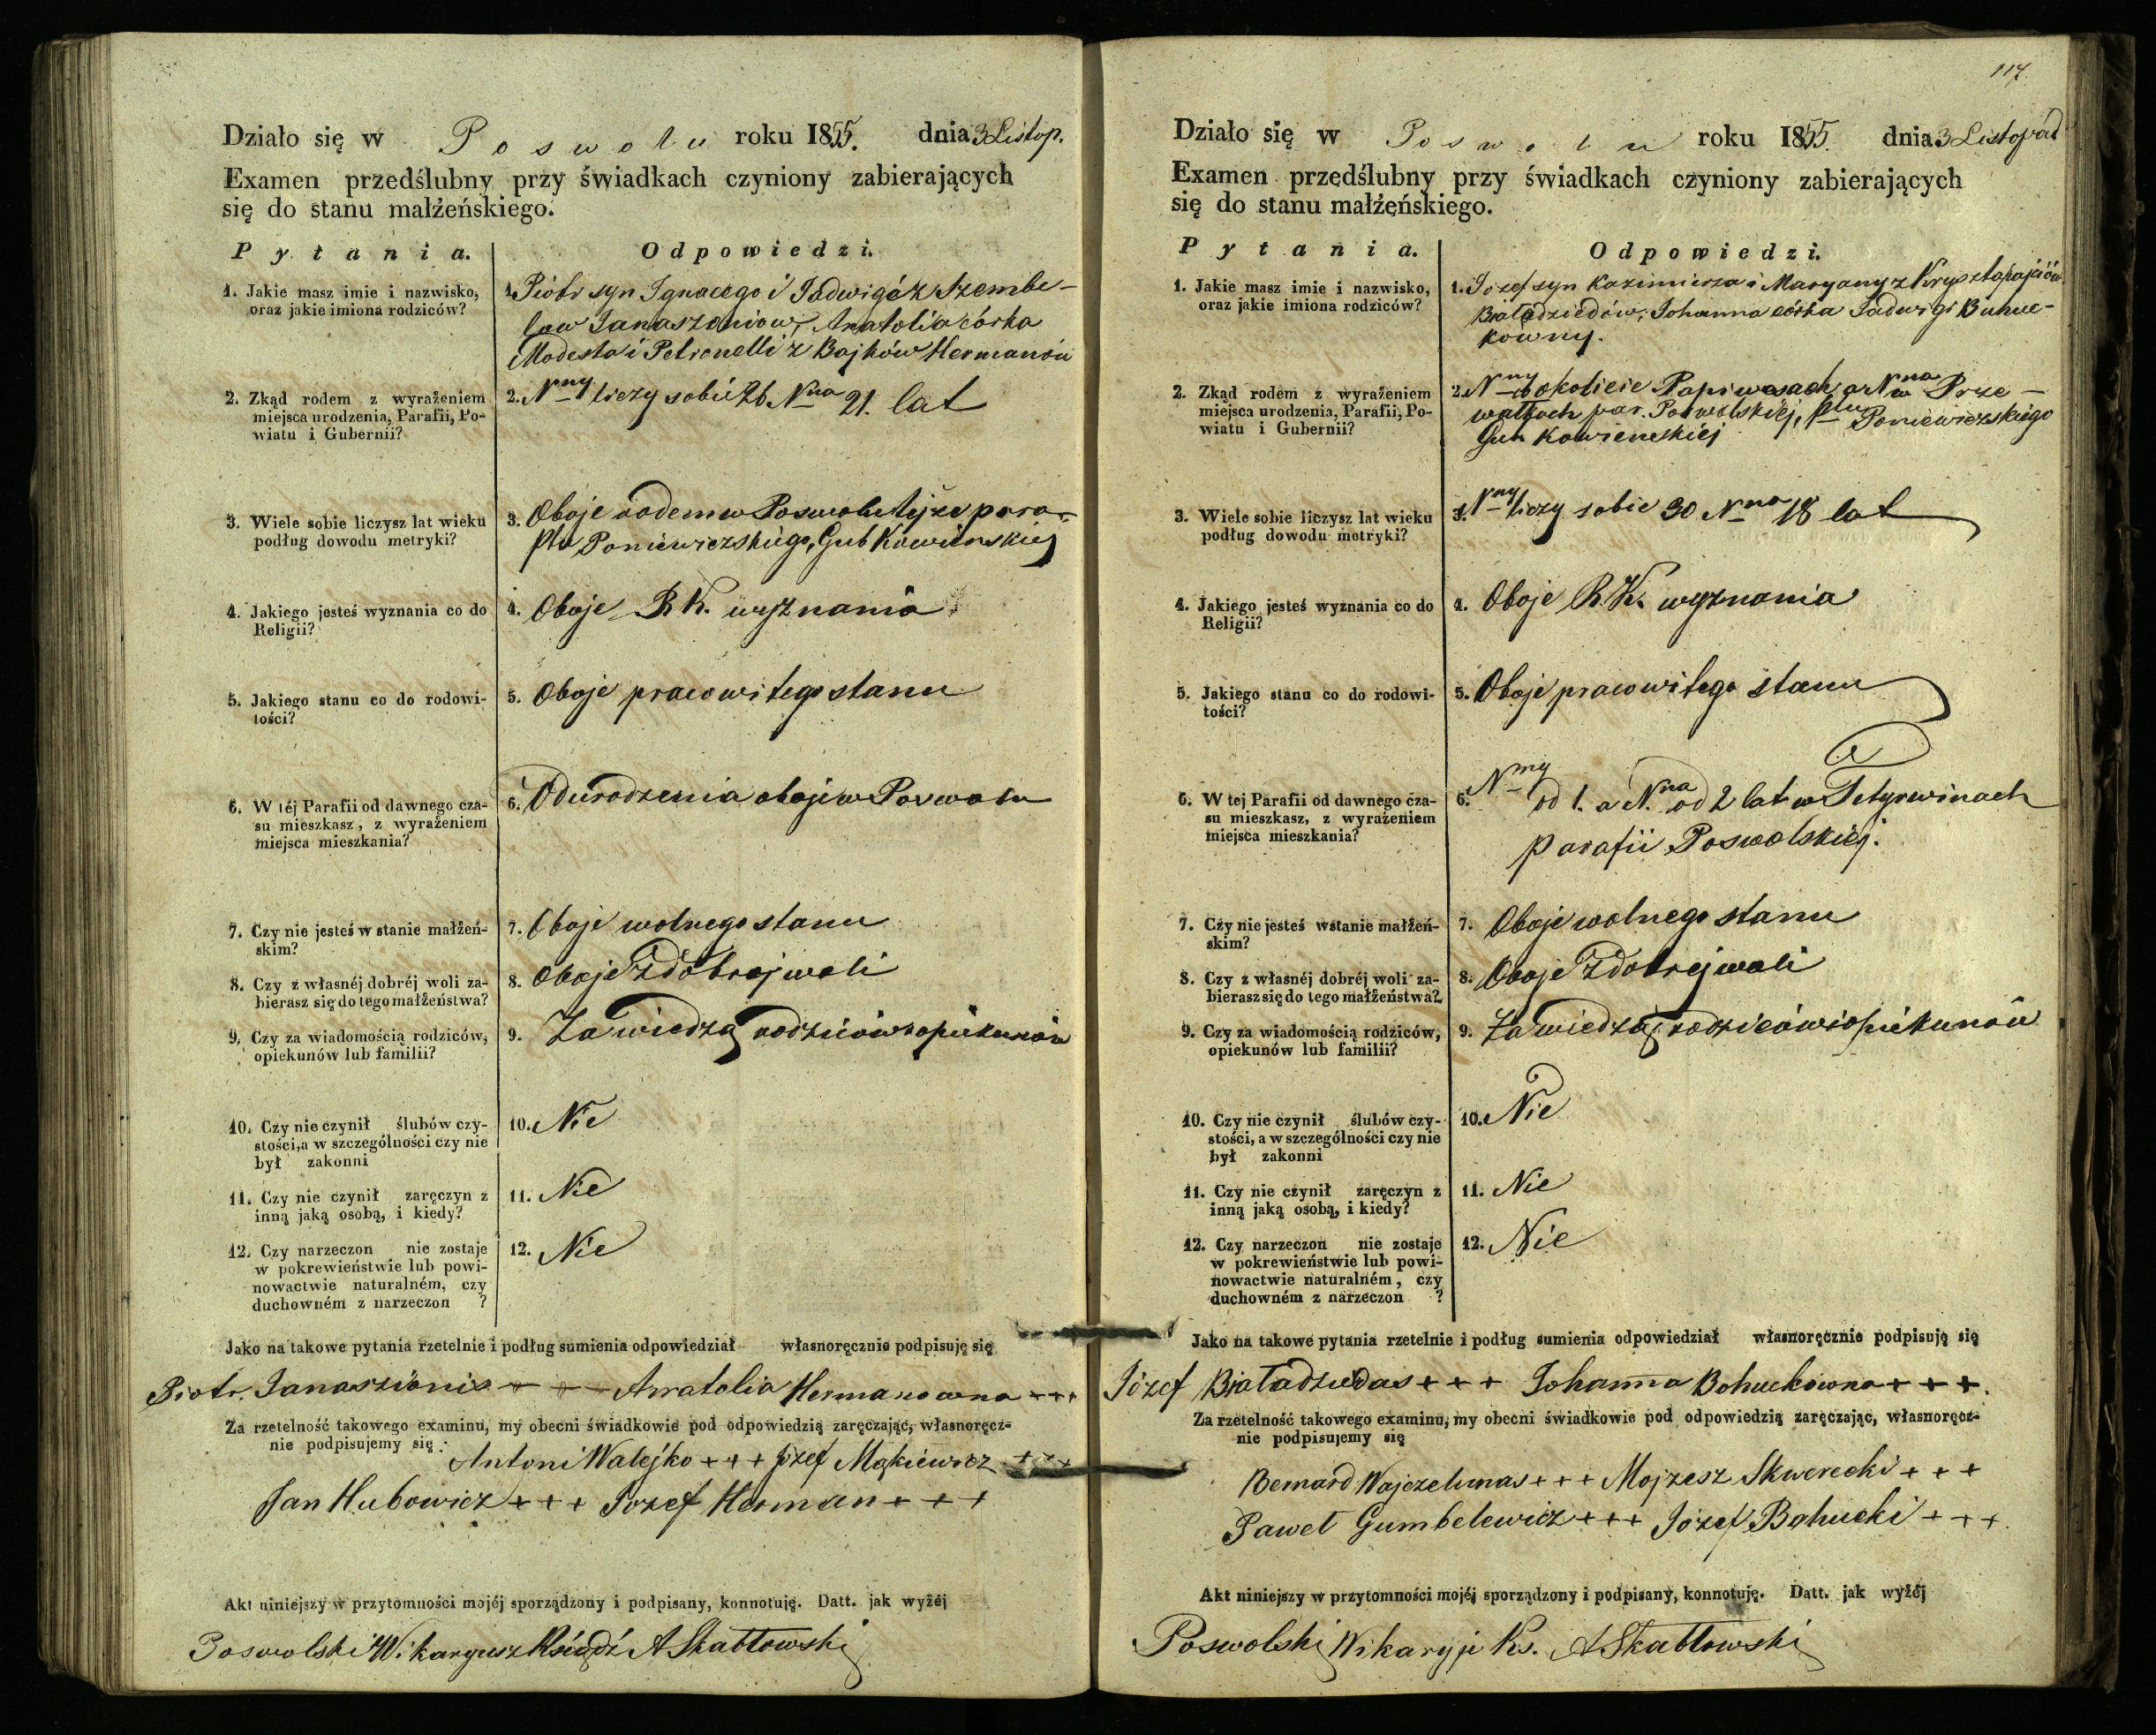 Działo się w Poswolu roku 1855. dnia 3 Listop.
Examen przedślubny przy świadkach czyniony zabierających
się do stanu małżeńskiego.
Pytania. Odpowiedzi.
1. Jakie masz imie i nazwisko,
oraz jakie imiona rodziców?
1. Piotr syn Ignacego i Jadwigi z Szembe-
low Janaszoniow, Anatolia córka
Modesta i Petronelli z Bajków Hermanów
2. Zkąd rodem z wyrażeniem
miejsca urodzenia, Parafii, Po-
wiatu i Gubernii?
2. Nny liczy sobie 26 Nna 21. lat
3. Wiele sobie liczysz lat wieku
podług dowodu metryki?
3. Oboje rodem w Poswolu tejże para.
Ptu Poniewiezskiego, Gub Kowienskiej
4. Jakiego jesteś wyznania co do
Religii?
4. Oboje R K. wyznania
5. Jakiego stanu co do rodowi-
tości?
5. Oboje pracowitego stanu
6. W téj Parafii od dawnego cza-
su mieszkasz, z wyrażeniem
miejsca mieszkania?
6. Od urodzenia oboje w Poswolu
7. Czy nie jesteś w stanie małżeń-
skim?
7. Oboje wolnego stanu
8. Czy z własnéj dobréj woli za-
bierasz się do tego małżeństwa?
8. Oboje z dobrej woli
9. Czy za wiadomością rodziców,
opiekunów lub familii?
9. Za wiedzą rodziców i opiekunów
10. Czy nie czynił ślubów czy-
stości, a w szczególności czy nie
był zakonni
10. Nie
11. Czy nie czynił zaręczyn z
inną jaką osobą, i kiedy?
11. Nie
12. Czy narzeczon nie zostaje
w pokrewieństwie lub powi-
nowactwie naturalném, czy
duchowném z narzeczon ?
12. Nie
Jako na takowe pytania rzetelnie i podług sumienia odpowiedział własnoręcznie podpisuję się
Piotr Janaszonis + + + Anatolia Hermanowna + + +
Za rzetelność takowego examinu, my obecni świadkowie pod odpowiedzią zaręczając, własnoręcz-
nie podpisujemy się:
Antoni Walejko + + + Jozef Mąkiewicz + + +
Jan Hubowicz + + + Jozef Herman + + +
Akt niniejszy w przytomności mojéj sporządzony i podpisany, konnotuję. Datt. jak wyżéj
Poswolski Wikaryusz Ksiądz A Skabłowski
117.
Działo się w Poswolu roku 1855 dnia 3 Listopad
Examen przedślubny przy świadkach czyniony zabierających
się do stanu małżeńskiego.
Pytania. Odpowiedzi.
1. Jakie masz imie i nazwisko,
oraz jakie imiona rodziców?
1. Jozef syn Kazimierza i Maryany z
Białodziedów, Johanna córka Jadwigi Buhuc-
kówny.
2. Zkąd rodem z wyrażeniem
miejsca urodzenia, Parafii, Po-
wiatu i Gubernii?
2. Nny w okolicie Papiwesach a Nna w Prze-
wałkach par. Poswolskiej, Ptu Poniewiezskiego
Gub Kowienskiej
3. Wiele sobie liczysz lat wieku
podług dowodu metryki?
3. Nny liczy sobie 30 Nna 18 lat
4. Jakiego jesteś wyznania co do
Religii?
4. Oboje R. K. wyznania
5. Jakiego stanu co do rodowi-
tości?
5. Oboje pracowitego stanu
6. W tej Parafii od dawnego cza-
su mieszkasz, z wyrażeniem
miejsca mieszkania?
6. Nny od 1. a Nna od 2 lat w Tetyrwinach
parafii Poswolskiej.
7. Czy nie jesteś wstanie małżeń-
skim?
7. Oboje wolnego stanu
8. Czy z własnéj dobréj woli za-
bierasz się do tego małżeństwa?
8. Oboje z dobrej woli
9. Czy za wiadomością rodziców,
opiekunów lub familii?
9. Za wiedzą rodziców i opiekunów
10. Czy nie czynił ślubów czy-
stości, a w szczególności czy nie
był zakonni
10. Nie
11. Czy nie czynił zaręczyn z
inną jaką osobą, i kiedy?
11. Nie
12. Czy narzeczon nie zostaje
w pokrewieństwie lub powi-
nowactwie naturalném, czy
duchowném z narzeczon ?
12. Nie
Jako na takowe pytania rzetelnie i podług sumienia odpowiedział własnoręcznie podpisują się
Józef Białadziedas + + + Johanna Bohuckówna + + +.
Za rzetelność takowego examinu, my obecni świadkowie pod odpowiedzią zaręczając, własnoręcz-
nie podpisujemy się
Bernard Wajczelunas + + + Mojzesz Skwerecki + + +
Paweł Gumbelewicz + + + Józef Bohucki + + +.
Akt niniejszy w przytomności mojéj sporządzony i podpisany, konnotuję. Datt. jak wyżéj
Poswolski Wikaryi Ks. A Skabłowski